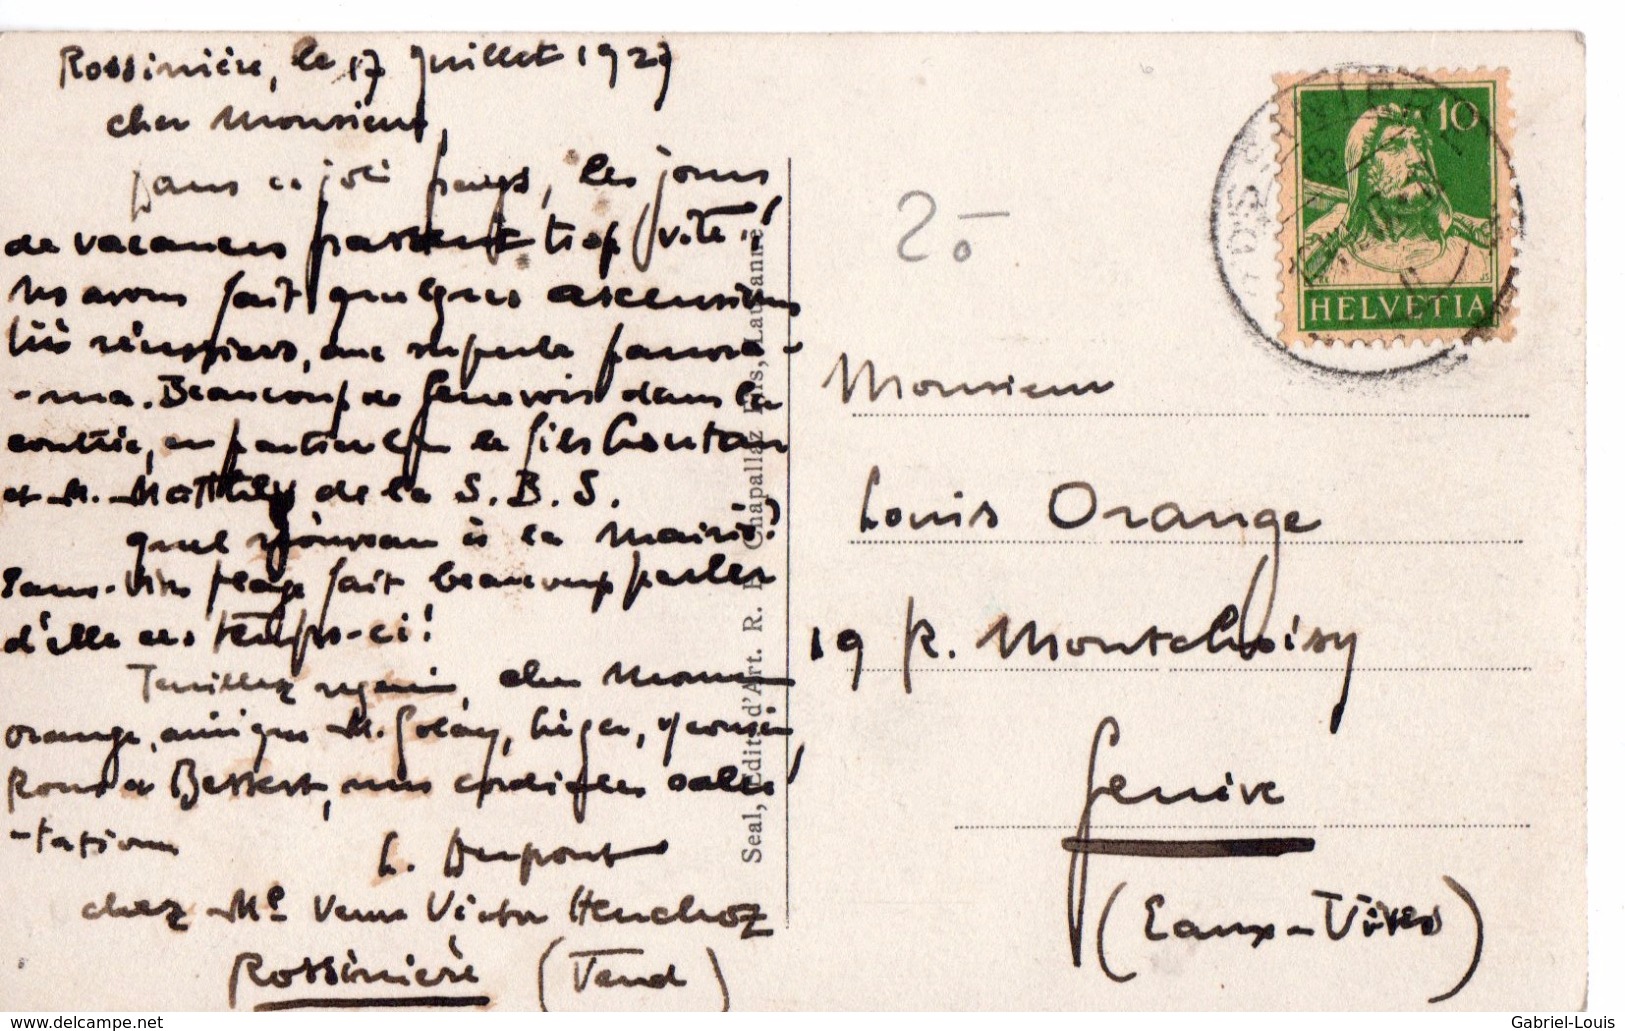 Rossinière, le 17 Juillet 1927
cher Monsieur,
Dans ce joli pays, les jours
de vacances passent trop vite!
Ns avons fait quelques ascensions
très réussies, avec superbe panora-
-ma. Beaucoup de Genevois dans la
contrée, en particulier le fils
et M. Matthey de la S. B. S.
Quel nouveau à la Mairie?
Eaux-Vives plage fait beaucoup parler
d'elle ces temps-ci!
Veuillez recevoir, cher Monsieur
Orange, ainsi que M. Golay, Léger,
Roux et Bessert, nos cordiales salu-
-tations
L. Dupont
chez Me Veuve Victor Henchoz
Rossinière (Vaud)
Seal, Edit. d'Art. R. E. Chapallaz Fils, Lausanne
20
10
HELVETIA
ROSSINIERE
Monsieur
Louis Orange
19 R. Montchoisy
Genève
(Eaux-Vives)
www.delcampe.net
Gabriel-Louis